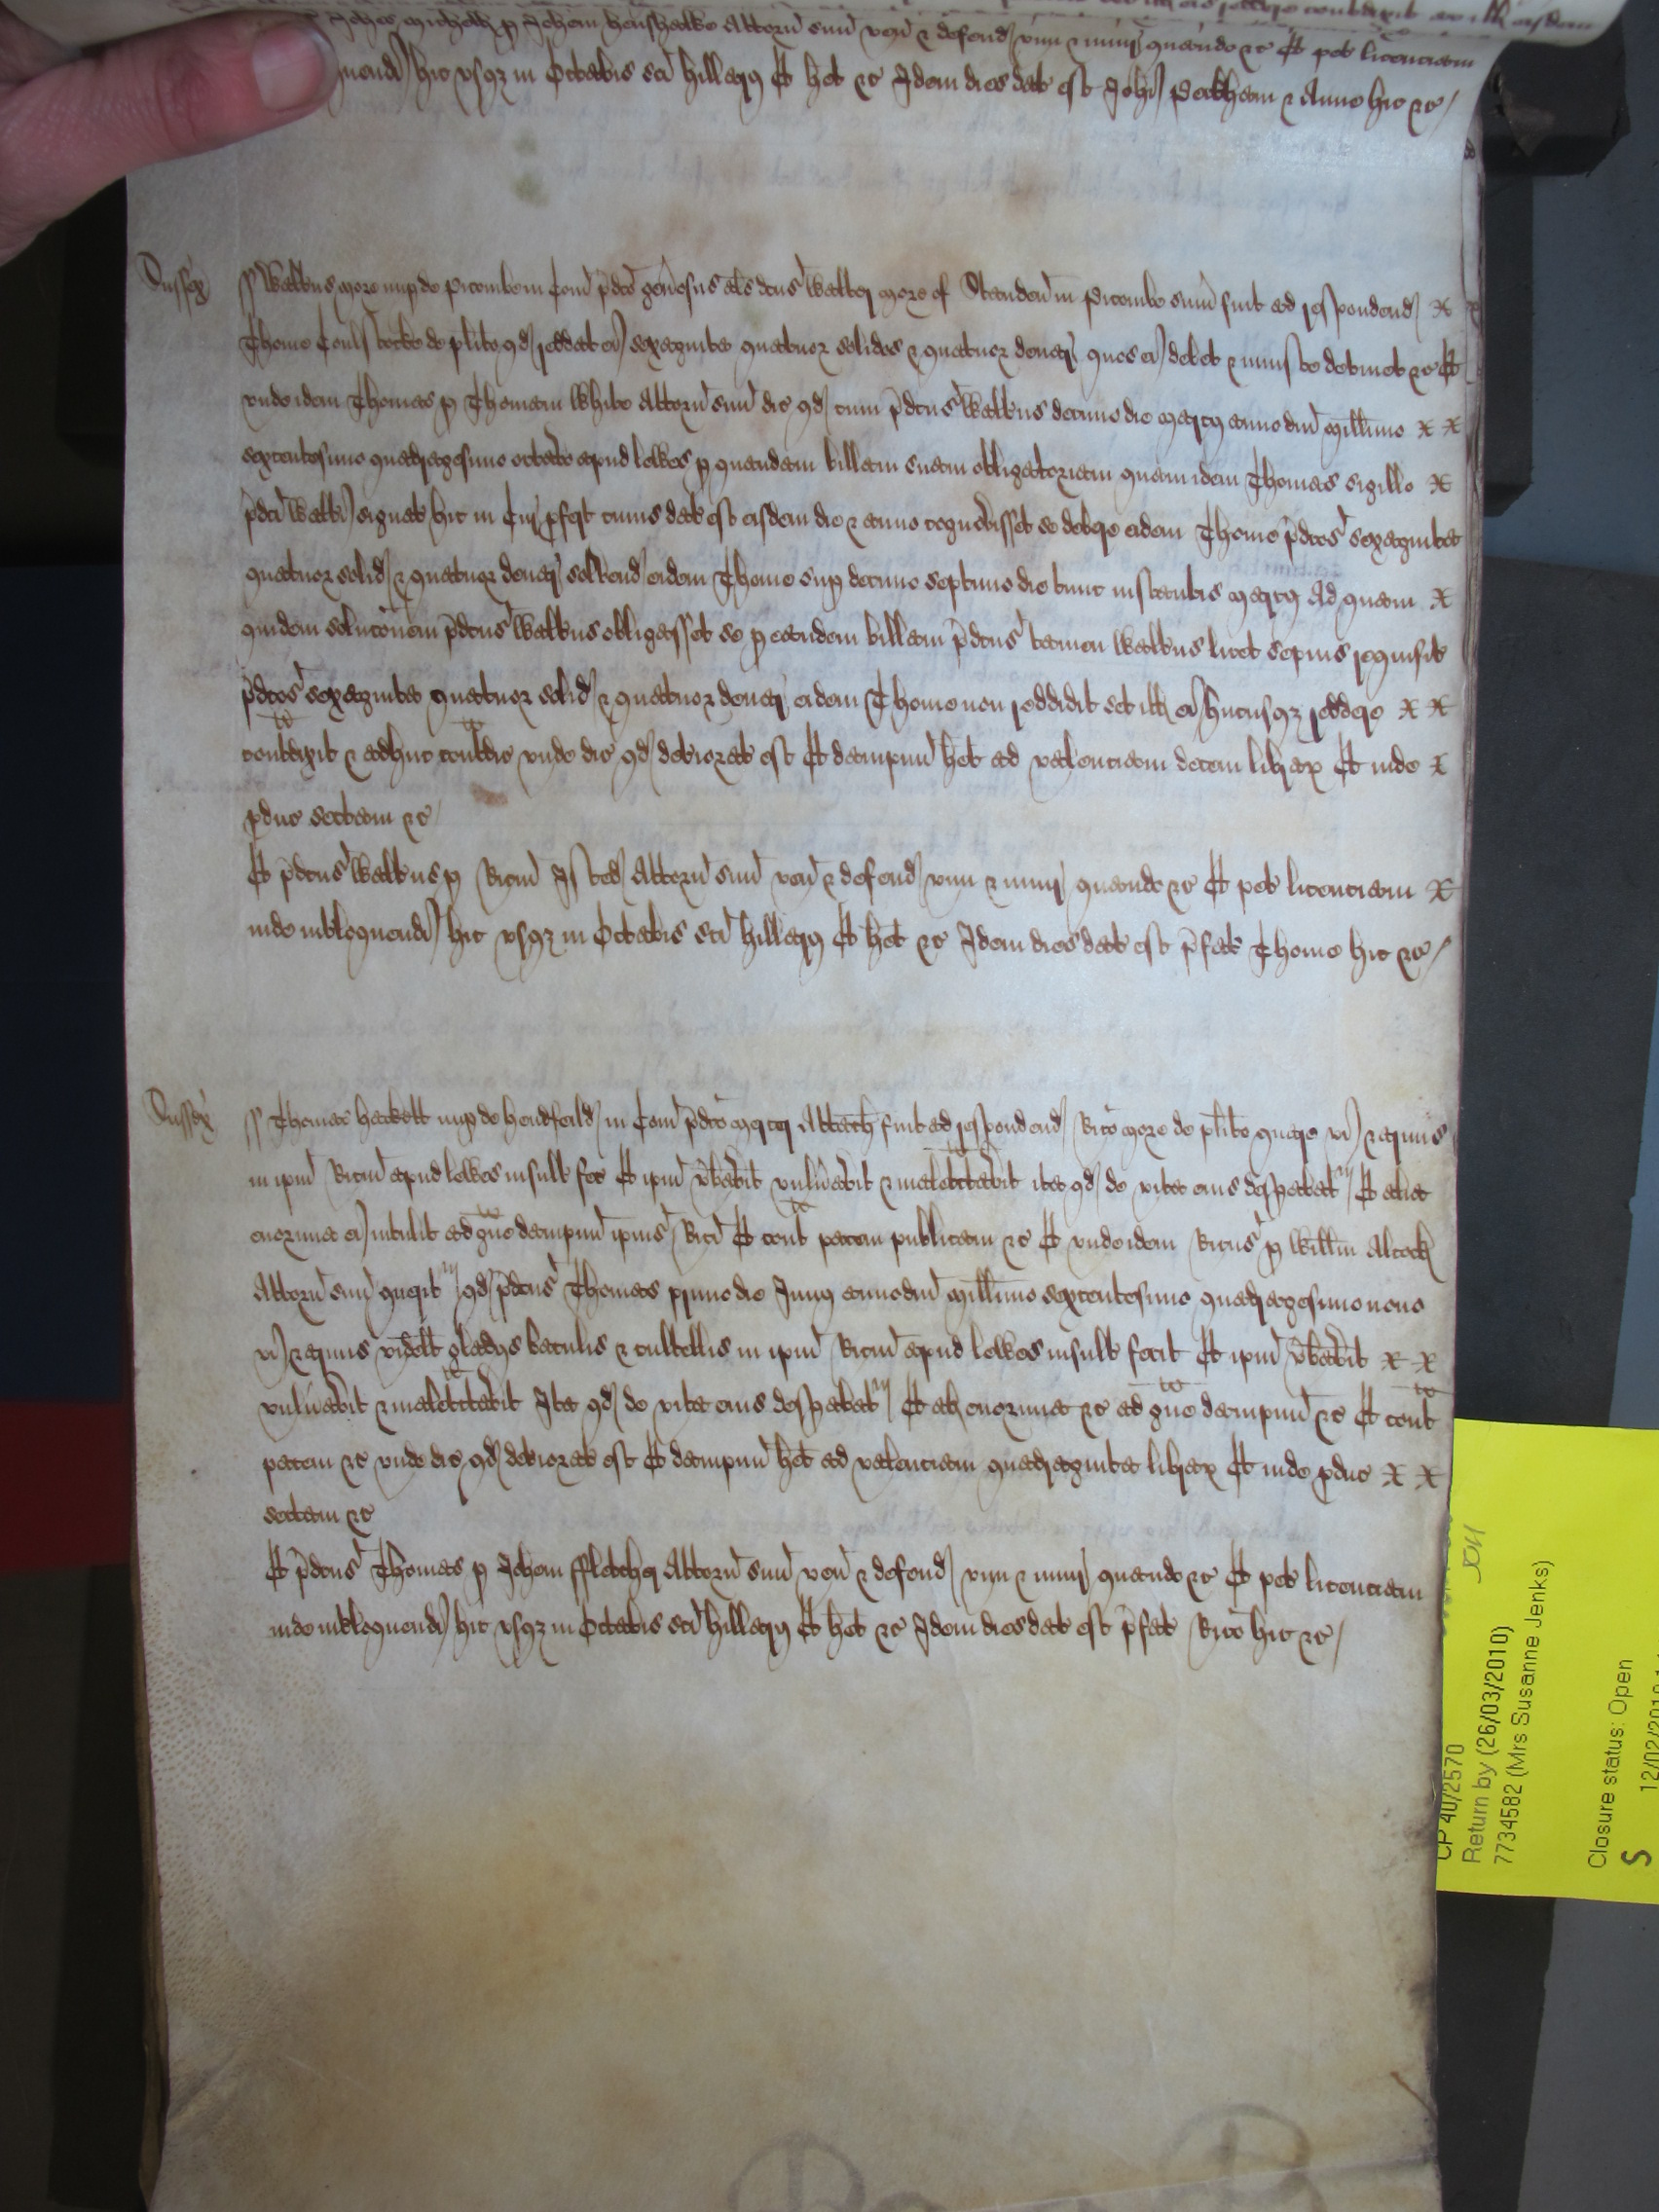 Attorn suu ven & defend vim & iniur quando &c Et pet licenciam
hic usq3 in Octabis sci Hillarij Et het &c Idem dies dat est Johi Peckham & Anne hic &c
Sussex
ss Waltus More nup de Picombe in Com pdco genosus als dcus Walter More of Standen in Picombe sum fuit ad respondend x
Thome Coulstocke de plito qd reddat ei sexaginta quatuor solidos & quatuor denar quos ei debet & iniuste detinet &c Et
unde idem Thomas p Thomam White Attorn suu dic qd cum pdcus Waltus decimo die Marcij anno dni millimo x x
sexcentesimo quadragesimo octavo apud Lewes p quandam billam suam obligatoriam quam idem Thomas sigillo x
pdci Walti signat hic in Cur pfert cuius dat est eisdem die & anno cognovisset se debere eidem Thome pdcos sexaginta
quatuor solid & quatuor denar solvend eidem Thome sup decimo septimo die tunc instantis Marcij Ad quam x
quidem solucionem pdcus Waltus obligasset se p eandem billam pdcus tamen Waltus licet sepius requisit
pdcos sexaginta quatuor solid & quatuor denar eidem Thome non reddidit set ill ei hucusq3 reddere x x
contradixit & adhuc contradic unde dic qd deteriorat est Et dampnu het ad valenciam decem librar Et inde x
pduc sectam &c
Et pdcus Waltus p Ricm Isted Attorn suu ven & defend vim & iniur quando &c Et pet licenciam x
inde intloquendi hic usq3 in Octabis sci Hillarij Et het &c Idem dies dat est pfat Thome hic &c
Sussex
ss Thomas Hackett nup de Henfeild in Com pdco Attach fuit ad respondend Rico More de plito quare vi & armis
in ipm Ricm apud Lewes insult fec Et ipm vberavit vulnavit & maletractavit ita qd de vita eius desperabat Et alia
enormia ei intulit ad grave dampnu ipius Rici Et cont pacem publicam &c Et unde idem Ricus p Willm Alcock
Attorn suu querit qd pdcus Thomas primo die Junij anno dni millimo sexcentesimo quadragesimo nono
vi & armis vidélt gladijs baculis & cultellis in ipm Ricm apud Lewes insult fecit Et ipm vberavit x x
vulnavit & maletractavit Ita qd de vita eius desperabat Et al enormia &c ad grave dampnu &c Et cont
pacem &c unde dic qd deteriorat est Et dampnu het ad valenciam quadraginta librar Et inde pduc x x
sectam &c
Et pdcus Thomas p Johem Fletcher Attorn suu ven & defend vim & iniur quando &c Et pet licenciam
inde intloquendi hic usq3 in Octabis sci Hillarij Et het &c Idem dies dat est pfat Rico hic &c
CP 40/2570
Return by (26/03/2010)
7734582 (Mrs Susanne Jenks)
Closure status: Open
S